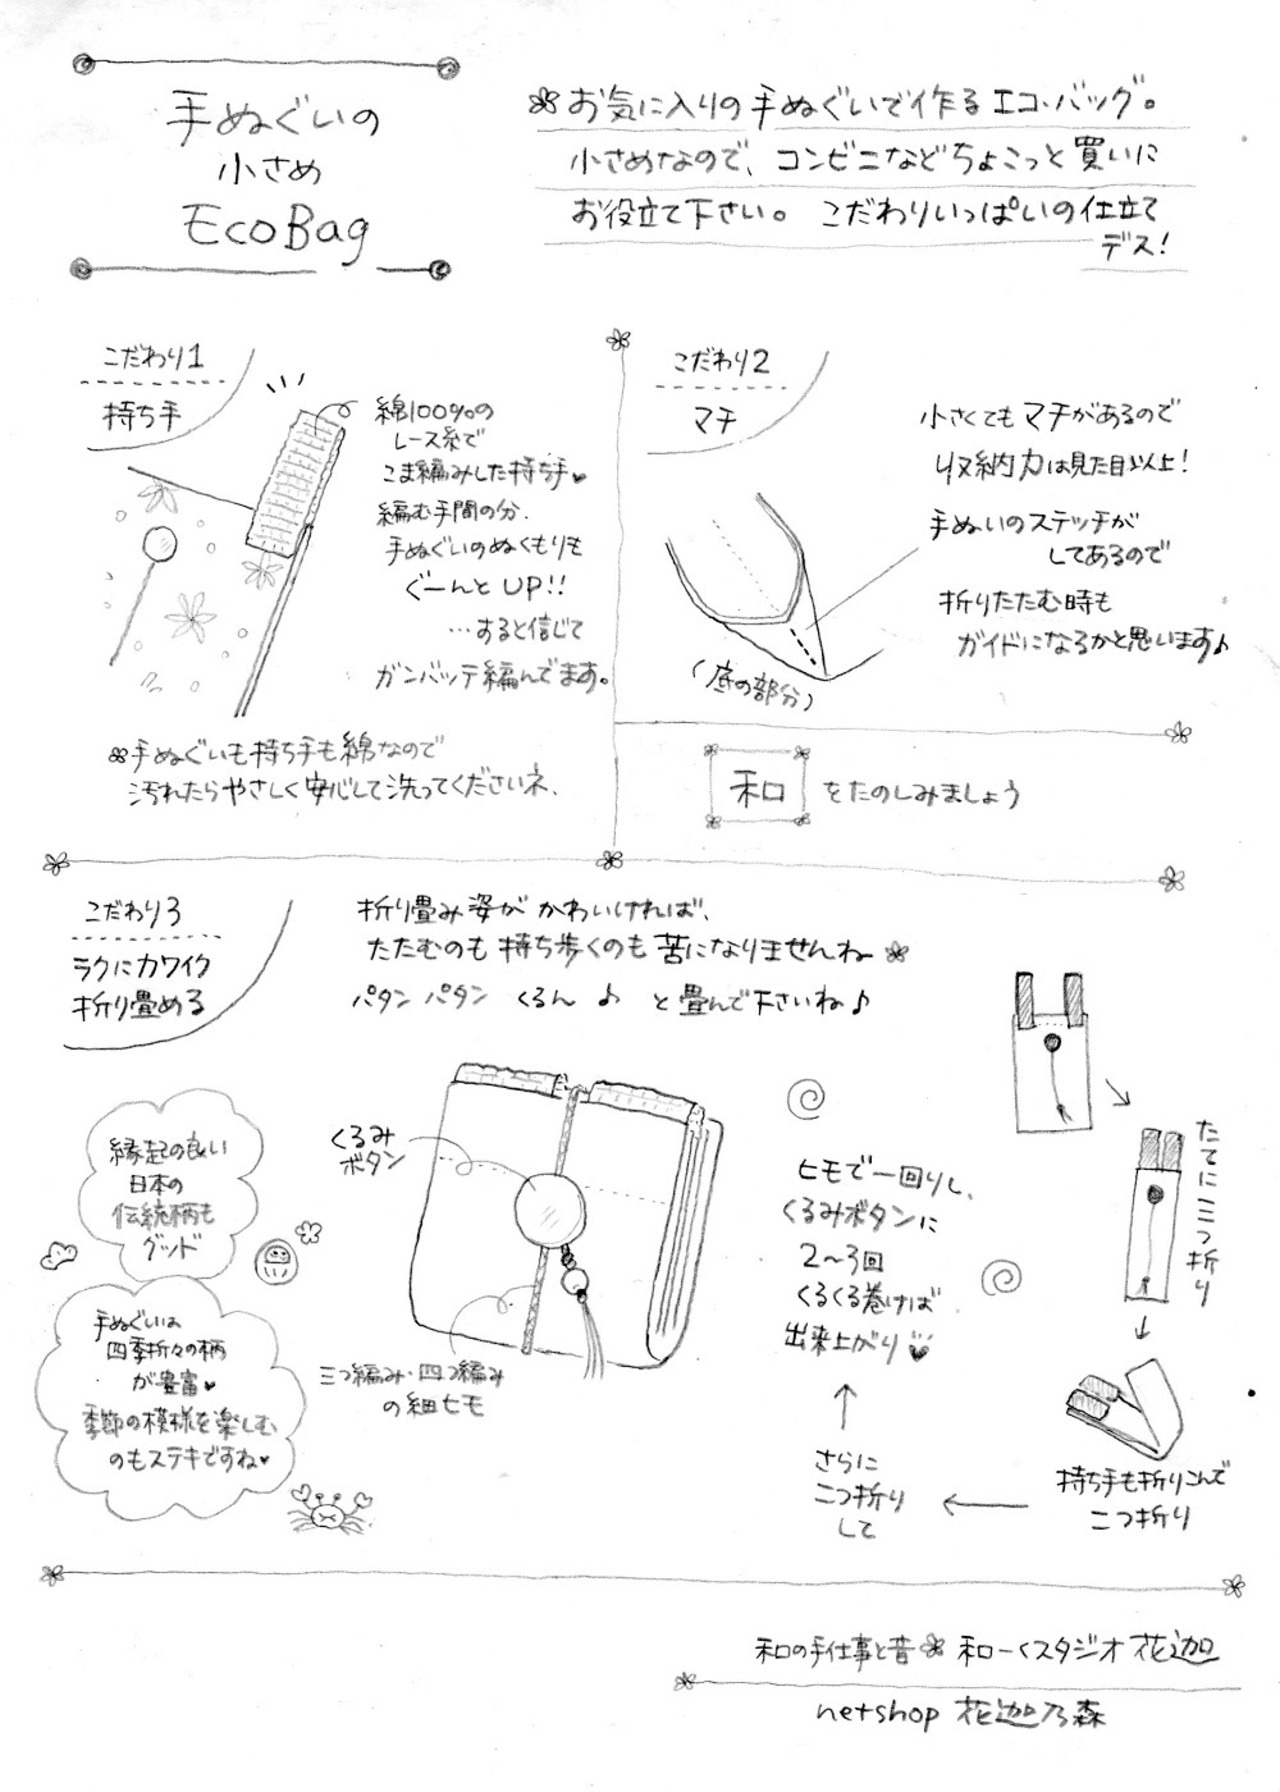 手ぬぐいの
小さめ
EcoBag
お気に入りの手ぬぐいで作るエコ・バッグ。
小さめなので、コンビニなどちょこっと買いに
お役立て下さい。こだわりいっぱいの仕立て
デス!
こだわり1
持ち手
綿100%の
レース糸で
こま編みした持ち手
編む手間の分、
手ぬぐいのぬくもりも
ぐーんとUP!!
…すると信じて
ガンバッテ編んでます。
手ぬぐいも持ち手も綿なので
汚れたらやさしく安心して洗ってくださいネ、
こだわり2
マチ
小さくてもマチがあるので
収納力は見た目以上!
手ぬいのステッチが
してあるので
折りたたむ時も
ガイドになるかと思います♪
(底の部分)
和をたのしみましょう
こだわり3
ラクにカワイク
折り畳める
折り畳み姿がかわいければ、
たたむのも持ち歩くのも苦になりませんね
パタンパタンくるん♪と畳んで下さいね♪
縁起の良い
日本の
伝統柄も
グッド
手ぬぐいは
四季折々の柄
が豊富♥
季節の模様を楽しむ
のもステキですね♥
くるみ
ボタン
三つ編み・四つ編み
の細ヒモ
たてに二つ折り
持ち手も折りこんで
二つ折り
さらに
二つ折り
して
ヒモで一回りし、
くるみボタンに
2〜3回
くるくる巻けば
出来上がり♥
和の手仕事と音 和ーくスタジオ花迦
netshop 花迦乃森